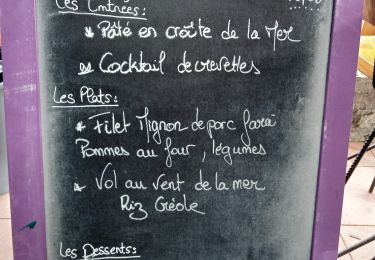 Les Entrées:
* Pâté en croûte de la Mer
* Cocktail de crevettes
Les Plats:
* Filet Mignon de porc
Pommes au four, légumes
* Vol au Vent de la mer
Riz Créole
Les Desserts: